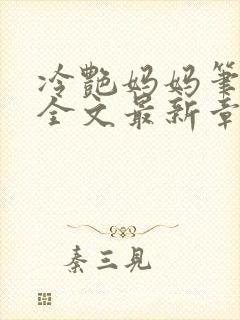 冷艷妈妈筆
全文最新章
秦三見